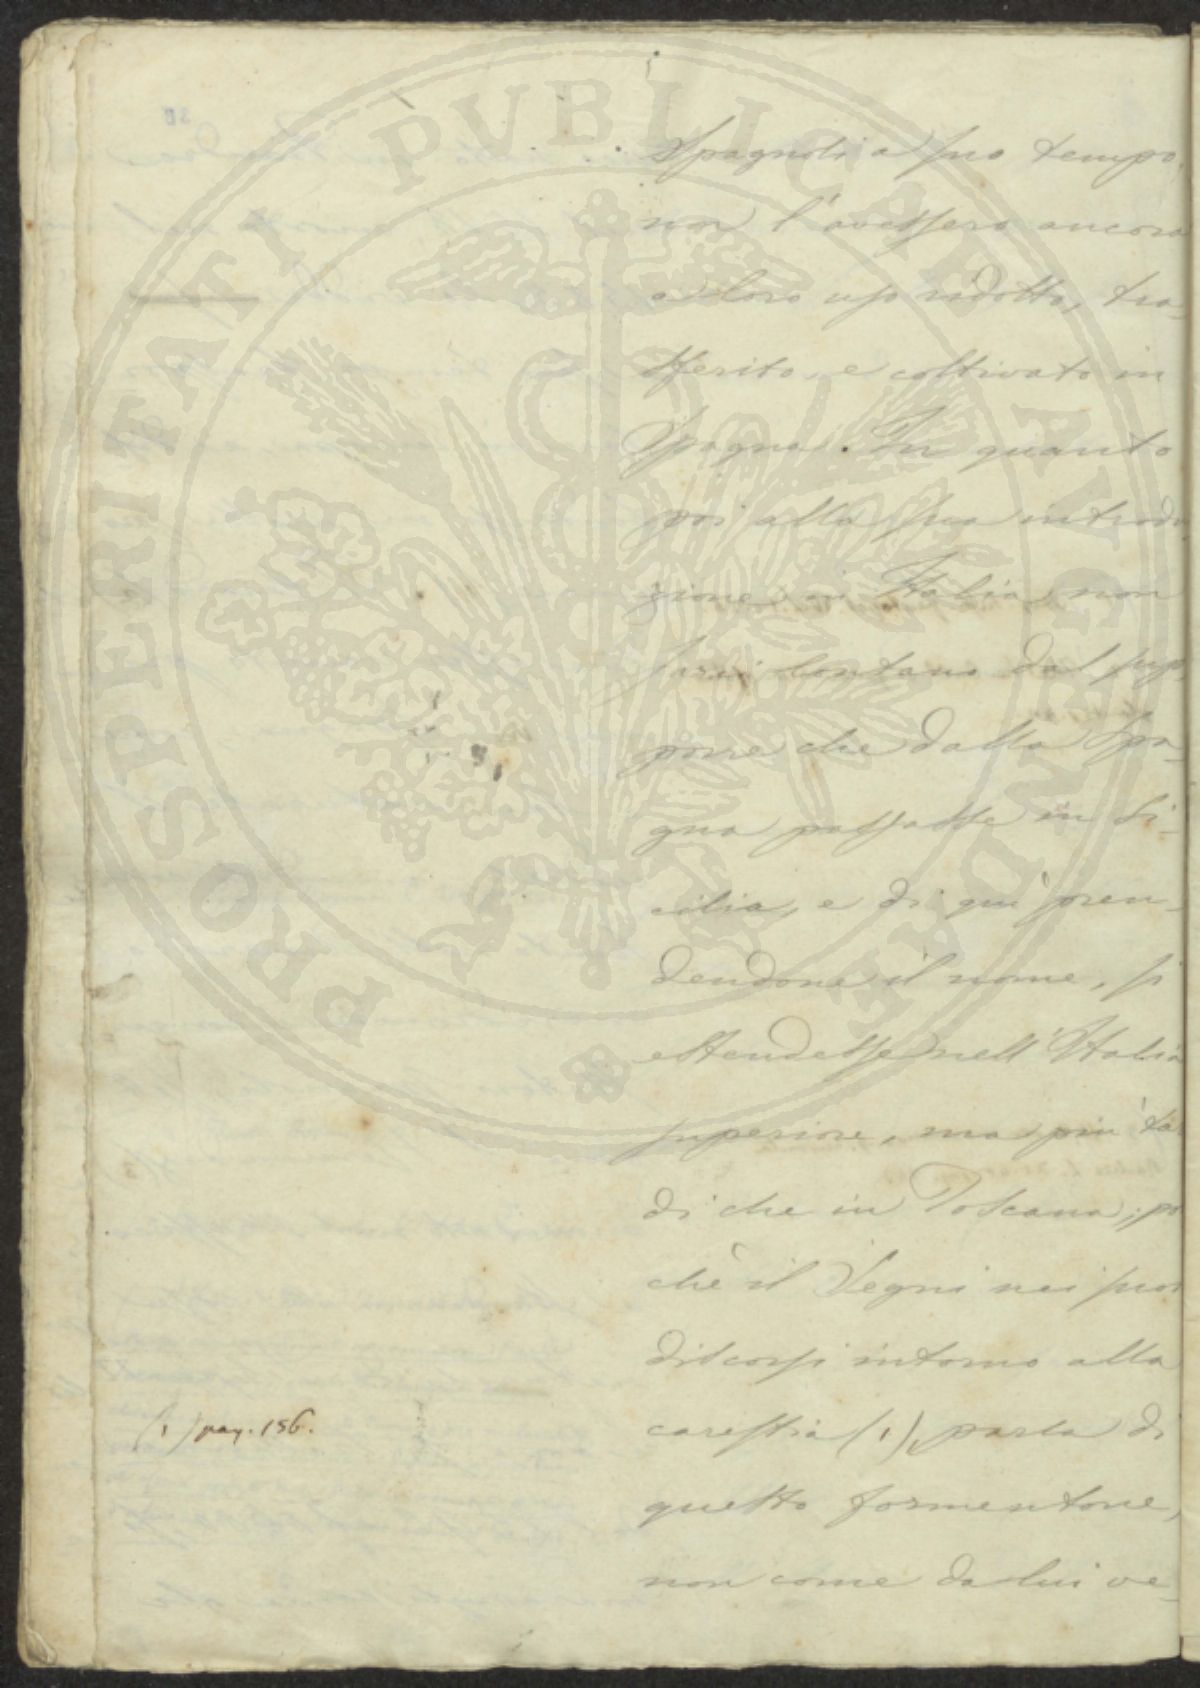 Spagnoli a suo tempo,
non l'avessero ancora
a loro uso ridotto, tra-
sferito, e coltivato in
Spagna. In quanto
poi alla sua introdu
zione in Italia non
sarei lontano dal sup
porre che dalla Spa-
gna passasse in Si-
cilia, e di quì pren-
dendone il nome, si
estendesse nell'Italia
superiore, ma più tar
di che in Toscana; poi
chè il Segni nei suoi
discorsi intorno alla
carestia (1), parla di
questo formentone,
non come da lui ve-
(1) pag. 156.
PROSPERITATI PVBLICAE AVGENDAE